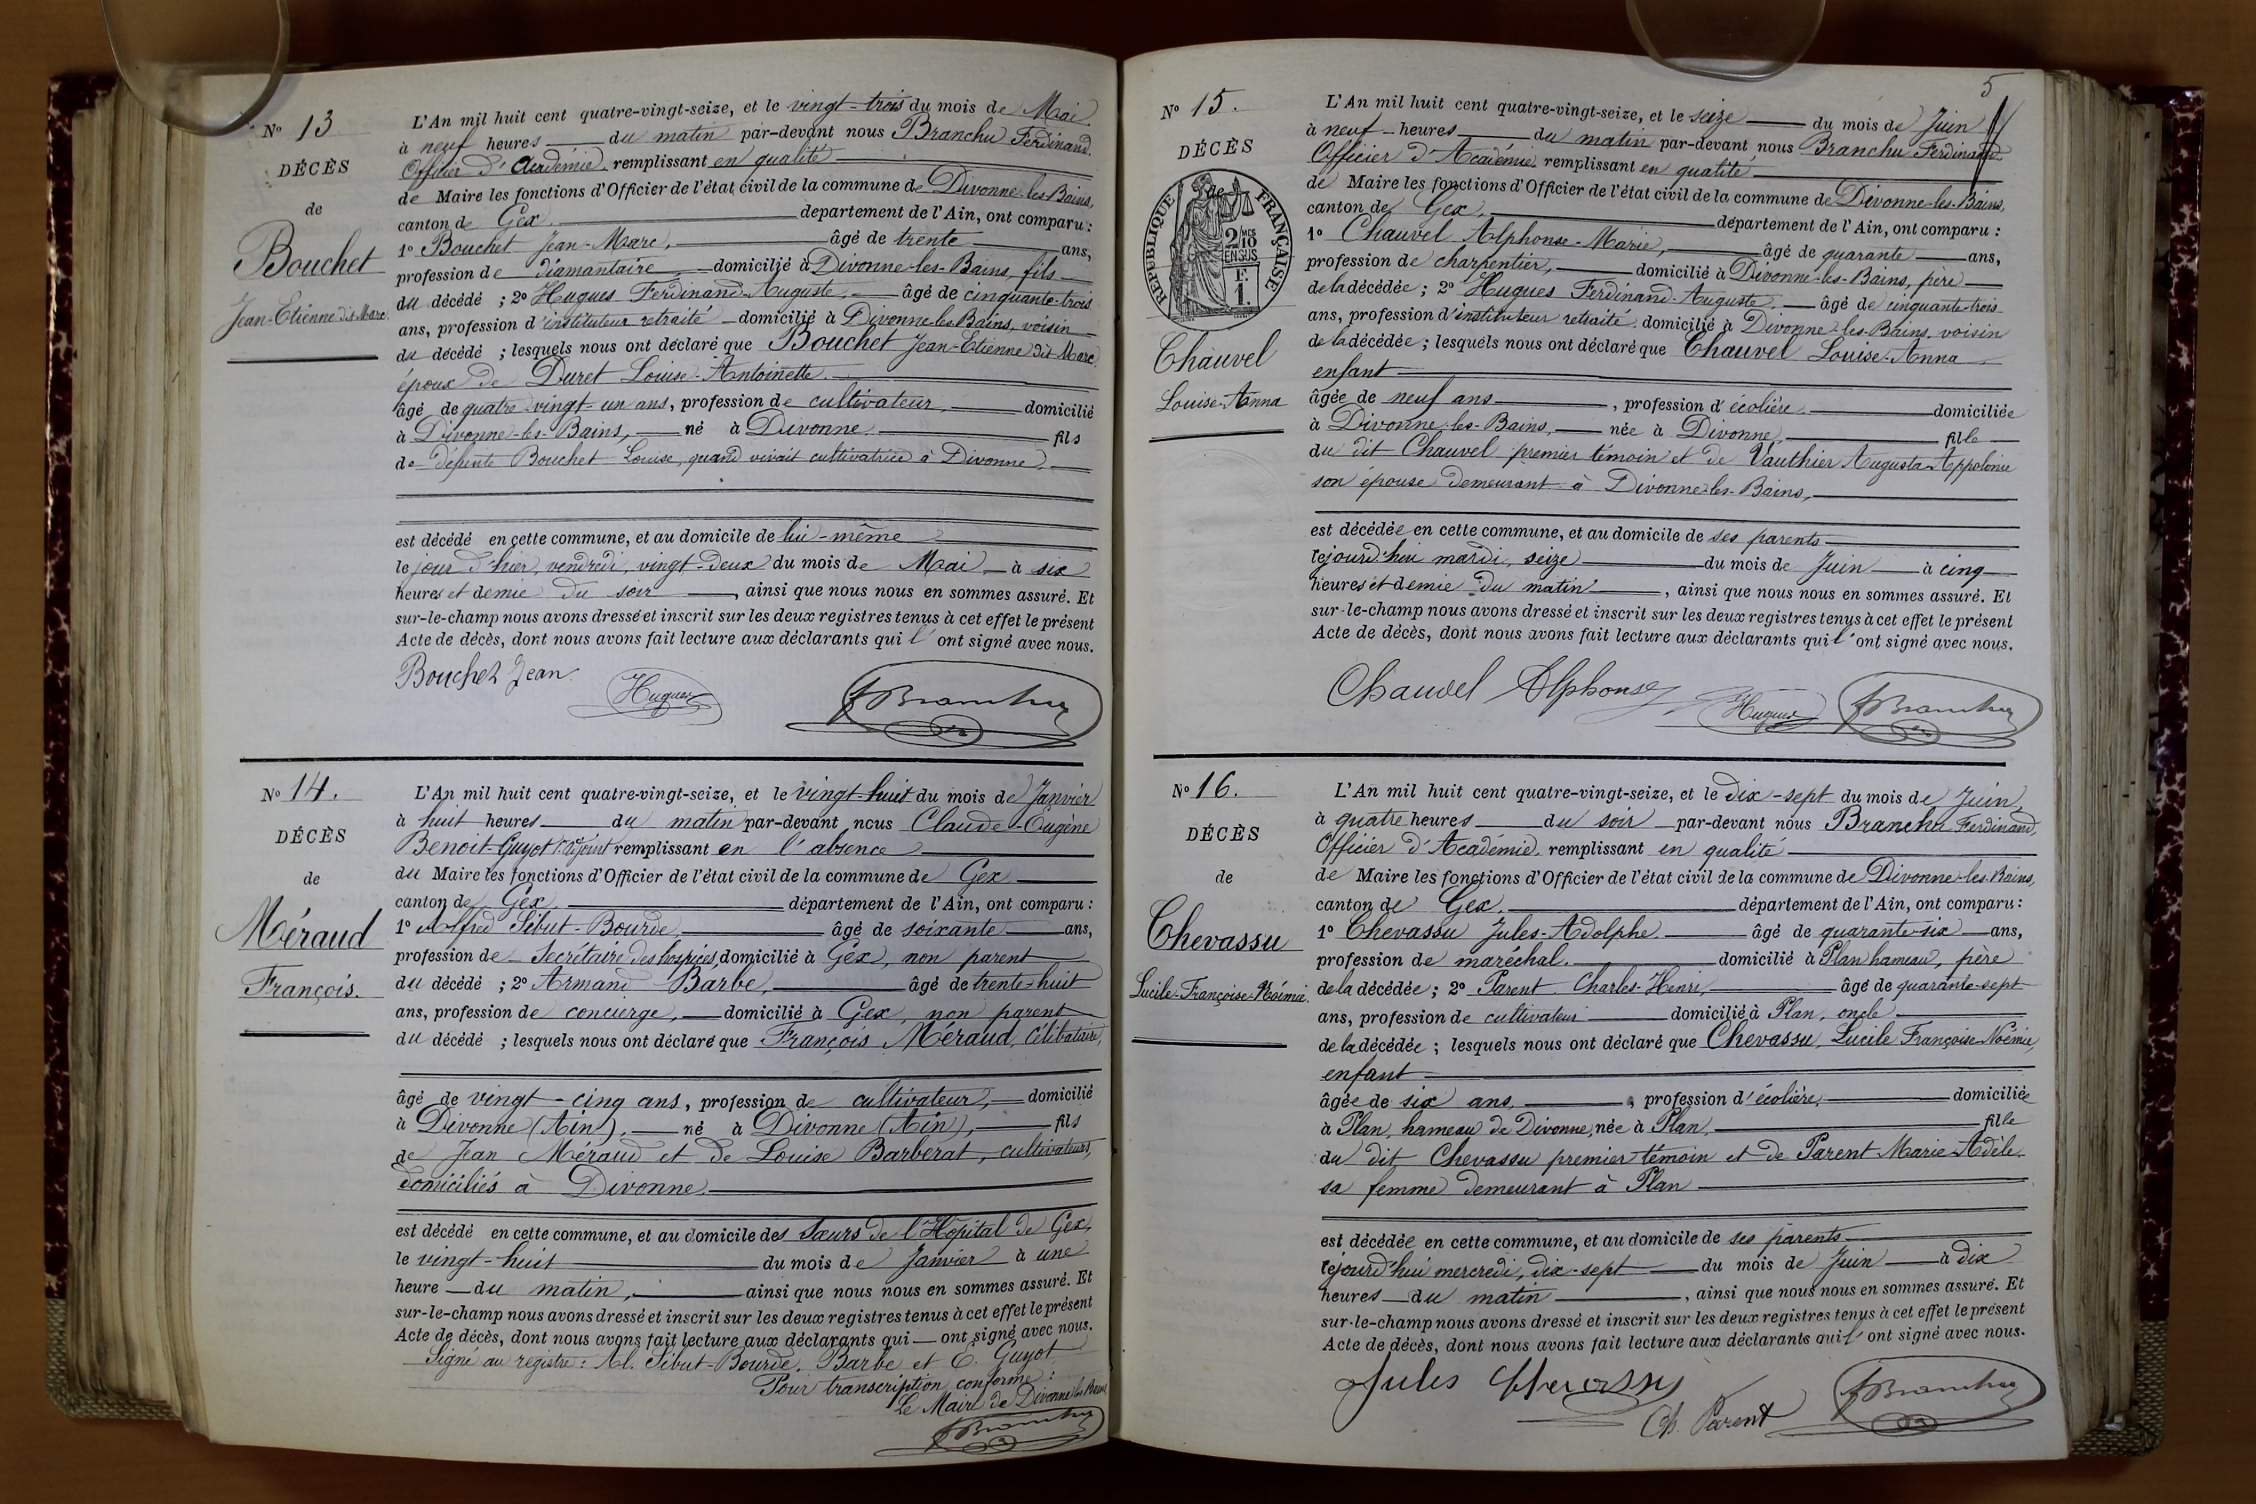 N° 13
DÉCÈS
de
Bouchet
Jean-Etienne dit Marc
L'An mil huit cent quatre-vingt-seize, et le vingt-trois du mois de Mai
à neuf heures du matin par-devant nous Branchu Ferdinand
Officier d'Académie, remplissant en qualité
de Maire les fonctions d'Officier de l'état civil de la commune de Divonne-les-Bains,
canton de Gex département de l'Ain, ont comparu :
1° Bouchet Jean-Marc, âgé de trente ans,
profession de diamantaire, domicilié à Divonne-les-Bains, fils
du décédé ; 2° Hugues Ferdinand-Auguste, âgé de cinquante-trois
ans, profession d'instituteur retraité domicilié à Divonne-les-Bains, voisin
du décédé ; lesquels nous ont déclaré que Bouchet Jean-Etienne dit Marc
époux de Duret Louise-Antoinette
âgé de quatre vingt-un ans, profession de cultivateur, domicilié
à Divonne-les-Bains, né à Divonne fils
de défunte Bouchet Louise, quand vivait cultivatrice à Divonne
est décédé en cette commune, et au domicile de lui-même
le jour d'hier, vendredi, vingt-deux du mois de Mai à six
heures et demie du soir, ainsi que nous nous en sommes assuré. Et
sur-le-champ nous avons dressé et inscrit sur les deux registres tenus à cet effet le présent
Acte de décès, dont nous avons fait lecture aux déclarants qui l'ont signé avec nous.
Bouchet Jean Hugues FBranchu
N° 14.
DÉCÈS
de
Méraud
François.
L'An mil huit cent quatre-vingt-seize, et le vingt-huit du mois de Janvier
à huit heures du matin par-devant nous Claude-Eugène
Benoit-Guyot 1er adjoint remplissant en l'absence
du Maire les fonctions d'Officier de l'état civil de la commune de Gex
canton de Gex département de l'Ain, ont comparu :
1° Alfred Sibut-Bourde, âgé de soixante ans,
profession de Secrétaire des hospices, domicilié à Gex, non parent
du décédé ; 2° Armand Barbe, âgé de trente-huit
ans, profession de concierge, domicilié à Gex, non parent
du décédé ; lesquels nous ont déclaré que François Méraud, célibataire,
âgé de vingt-cinq ans, profession de cultivateur, domicilié
à Divonne (Ain), né à Divonne (Ain), fils
de Jean Méraud et de Louise Barberat, cultivateurs,
domiciliés à Divonne
est décédé en cette commune, et au domicile des Sœurs de l'Hôpital de Gex,
le vingt-huit du mois de Janvier à une
heure du matin, ainsi que nous nous en sommes assuré. Et
sur-le-champ nous avons dressé et inscrit sur les deux registres tenus à cet effet le présent
Acte de décès, dont nous avons fait lecture aux déclarants qui ont signé avec nous.
Signé au registre : Al. Sibut-Bourde, Barbe et E. Guyot
Pour transcription conforme :
Le Maire de Divonne les Bains
FBranchu
5
N° 15.
DÉCÈS
de
RÉPUBLIQUE FRANÇAISE
2/10 MES
EN SUS
F.
1.
Chauvel
Louise-Anna
L'An mil huit cent quatre-vingt-seize, et le seize du mois de Juin
à neuf heures du matin par-devant nous Branchu Ferdinand
Officier d'Académie, remplissant en qualité
de Maire les fonctions d'Officier de l'état civil de la commune de Divonne-les-Bains,
canton de Gex, département de l'Ain, ont comparu :
1° Chauvel Alphonse-Marie, âgé de quarante ans,
profession de charpentier, domicilié à Divonne-les-Bains, père
de la décédée ; 2° Hugues Ferdinand-Auguste âgé de cinquante-trois
ans, profession d'instituteur retraité domicilié à Divonne-les-Bains, voisin
de la décédée ; lesquels nous ont déclaré que Chauvel Louise-Anna
enfant
âgée de neuf ans, profession d'écolière domiciliée
à Divonne-les-Bains, née à Divonne, fille
du dit Chauvel premier témoin et de Vauthier Augusta-Appolonie
son épouse demeurant à Divonne-les-Bains,
est décédée en cette commune, et au domicile de ses parents
cejourd'hui mardi, seize du mois de Juin à cinq
heures et demie du matin, ainsi que nous nous en sommes assuré. Et
sur-le-champ nous avons dressé et inscrit sur les deux registres tenus à cet effet le présent
Acte de décès, dont nous avons fait lecture aux déclarants qui l'ont signé avec nous.
Chauvel Alphonse Hugues FBranchu
N° 16.
DÉCÈS
de
Chevassu
Lucile-Françoise-Noémie.
L'An mil huit cent quatre-vingt-seize, et le dix-sept du mois de Juin,
à quatre heures du soir par-devant nous Branchu Ferdinand,
Officier d'Académie, remplissant en qualité
de Maire les fonctions d'Officier de l'état civil de la commune de Divonne-les-Bains,
canton de Gex, département de l'Ain, ont comparu :
1° Chevassu Jules-Adolphe âgé de quarante-six ans,
profession de maréchal, domicilié à Plan hameau, père
de la décédée ; 2° Parent Charles-Henri, âgé de quarante-sept
ans, profession de cultivateur domicilié à Plan, oncle
de la décédée ; lesquels nous ont déclaré que Chevassu, Lucile Françoise Noémie,
enfant
âgée de six ans, profession d'écolière, domiciliée
à Plan, hameau de Divonne, née à Plan, fille
du dit Chevassu premier témoin et de Parent Marie-Adèle
sa femme demeurant à Plan
est décédée en cette commune, et au domicile de ses parents
cejourd'hui mercredi, dix-sept du mois de Juin à dix
heures du matin, ainsi que nous nous en sommes assuré. Et
sur-le-champ nous avons dressé et inscrit sur les deux registres tenus à cet effet le présent
Acte de décès, dont nous avons fait lecture aux déclarants qui l'ont signé avec nous.
Jules Chevassu Ch. Parent FBranchu